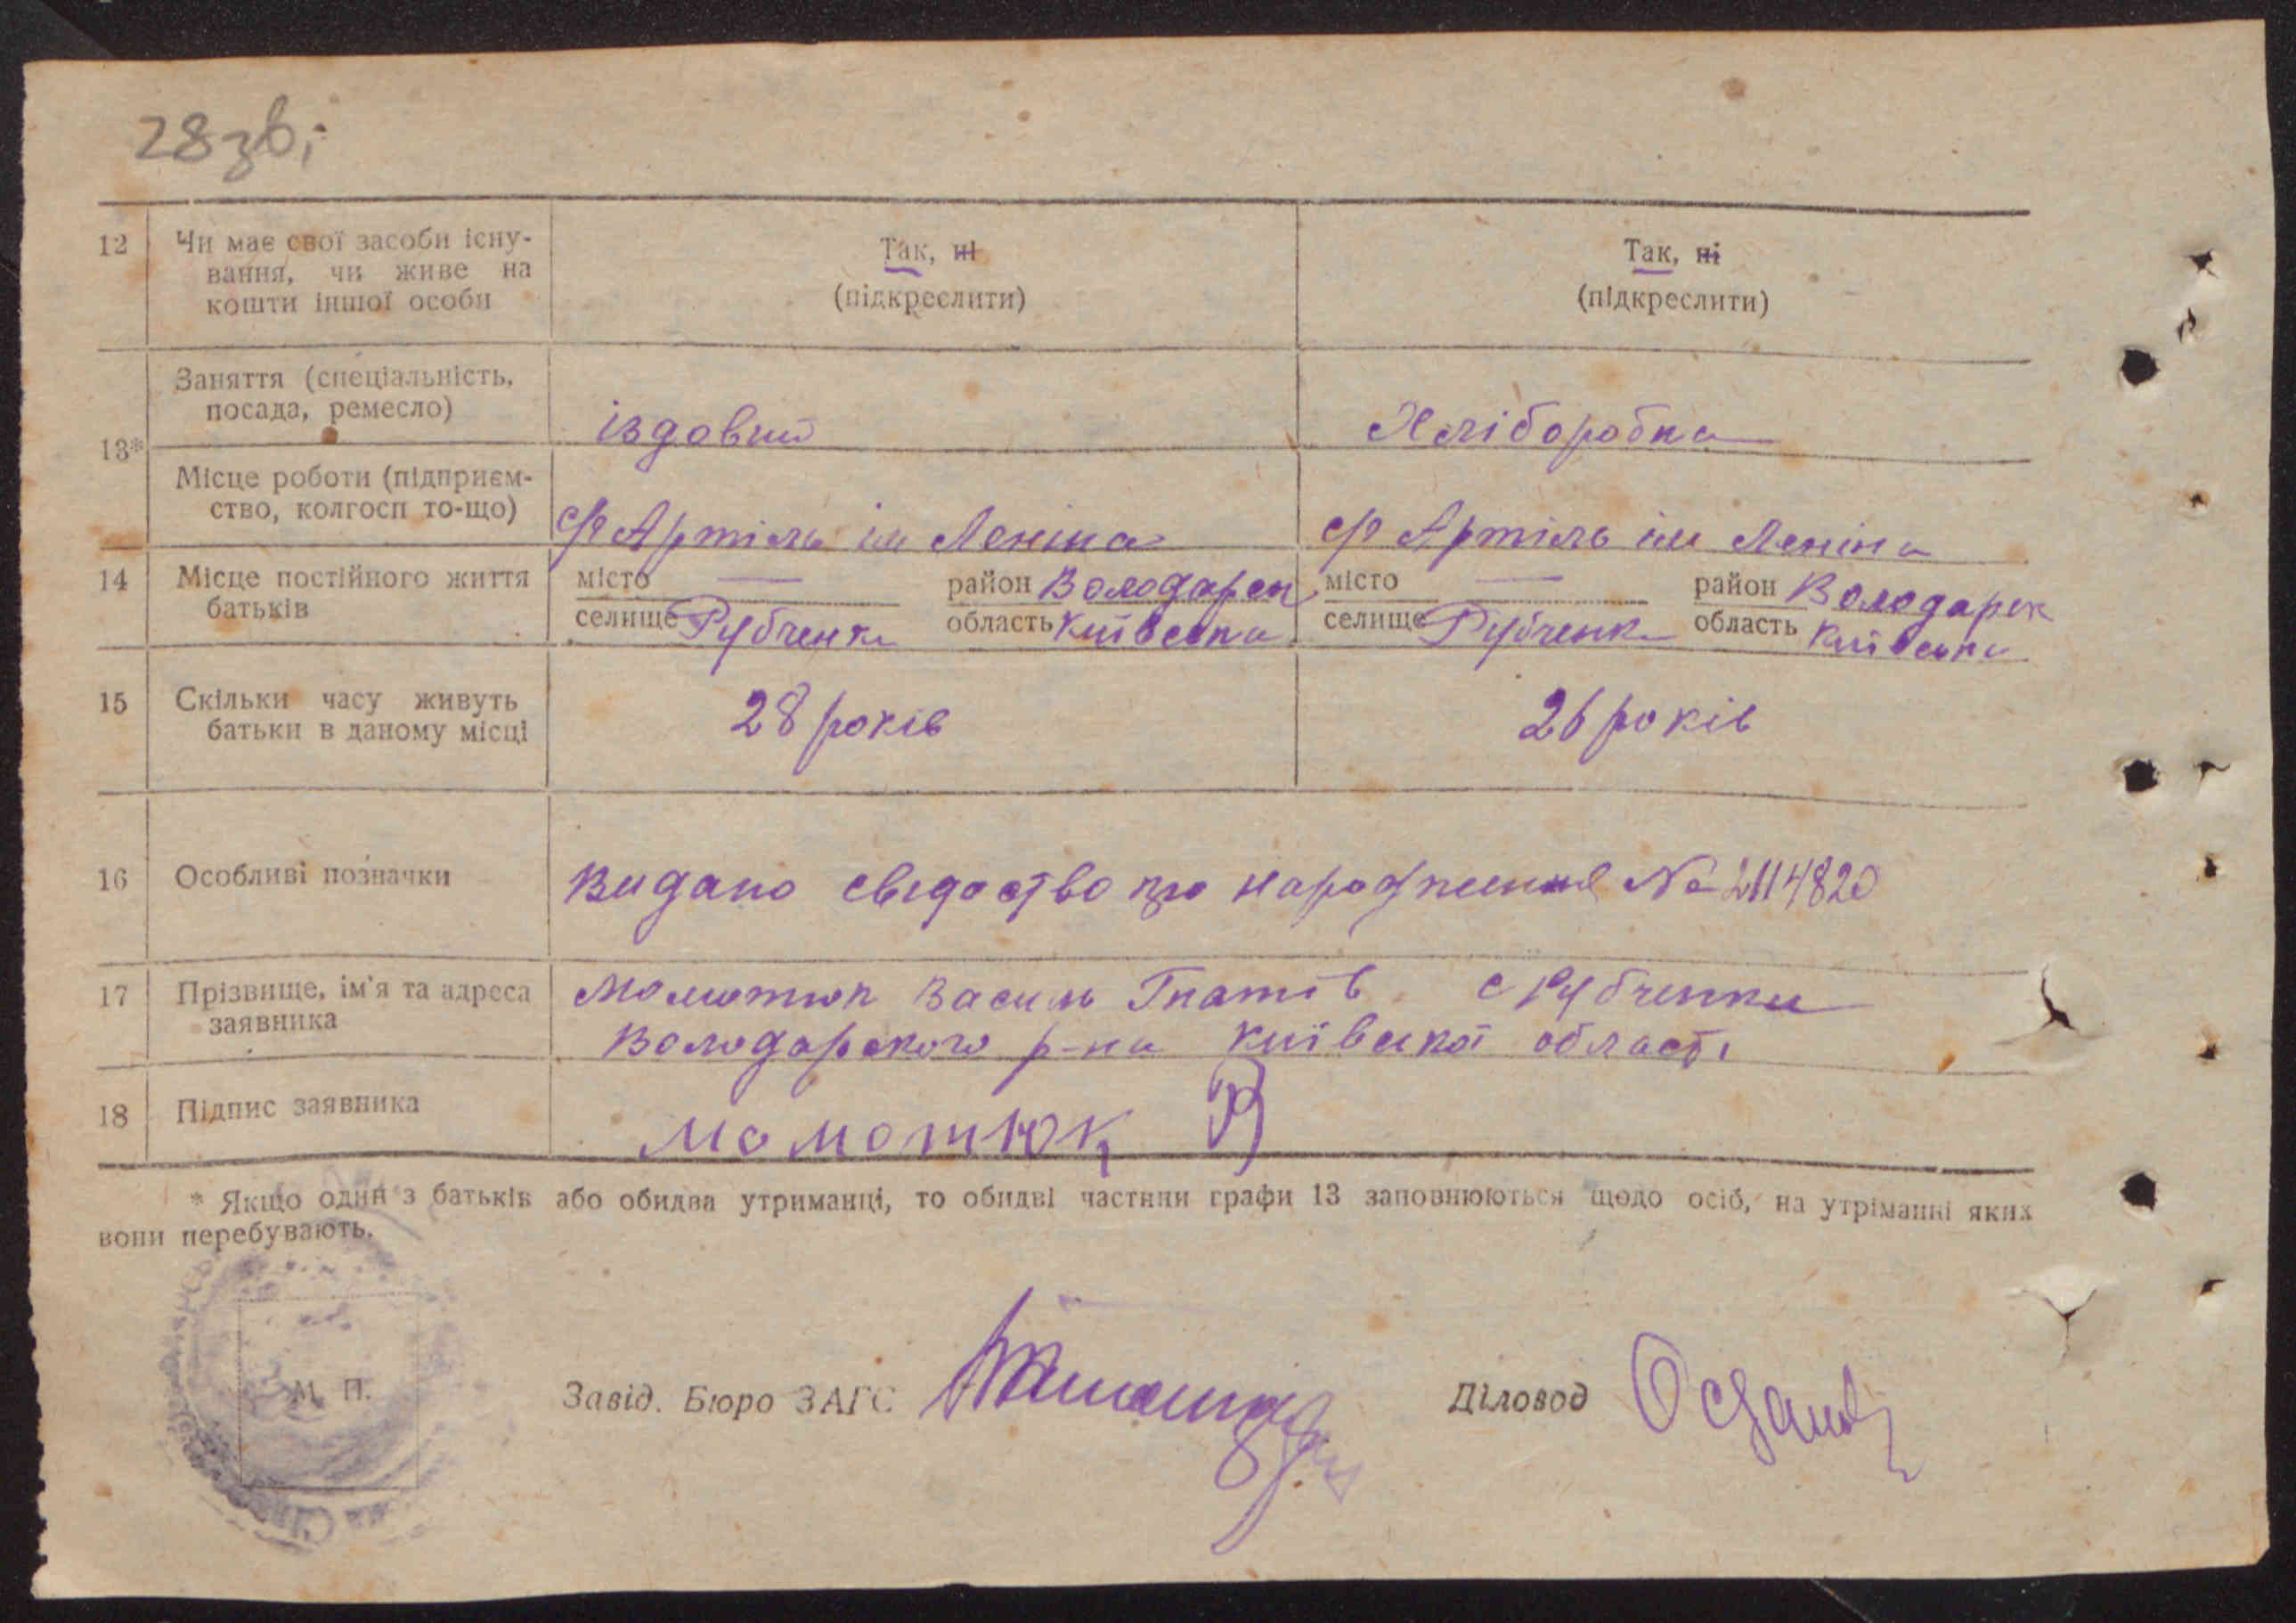 28 зв.
12 Чи має свої засоби існу- Так, ні Так, ні
вання, чи живе на
кошти іншої особи (підкреслити) (підкреслити)
Заняття (спеціальність,
посада, ремесло) їздовий Хліборобка
13*
Місце роботи (підприєм-
ство, колгосп то-що) с/г Артіль ім Леніна с/г Артіль ім Леніна
14 Місце постійного життя місто — район Володарськ місто — район Володарськ
батьків селище Рубченки область Київська селище Рубченки область Київська
15 Скільки часу живуть 28 років 26 років
батьки в даному місці
16 Особливі позначки Видано свідоство про народження № 2114820
17 Прізвище, ім'я та адреса Момотюк Василь Гнатів с Рубченки
заявника Володарского р-на Київської області
18 Підпис заявника Момотюк В
* Якщо один з батьків або обидва утриманці, то обидві частини графи 13 заповнюються щодо осіб, на утріманні яких
вони перебувають.
М. П.
Завід. Бюро ЗАГС Діловод